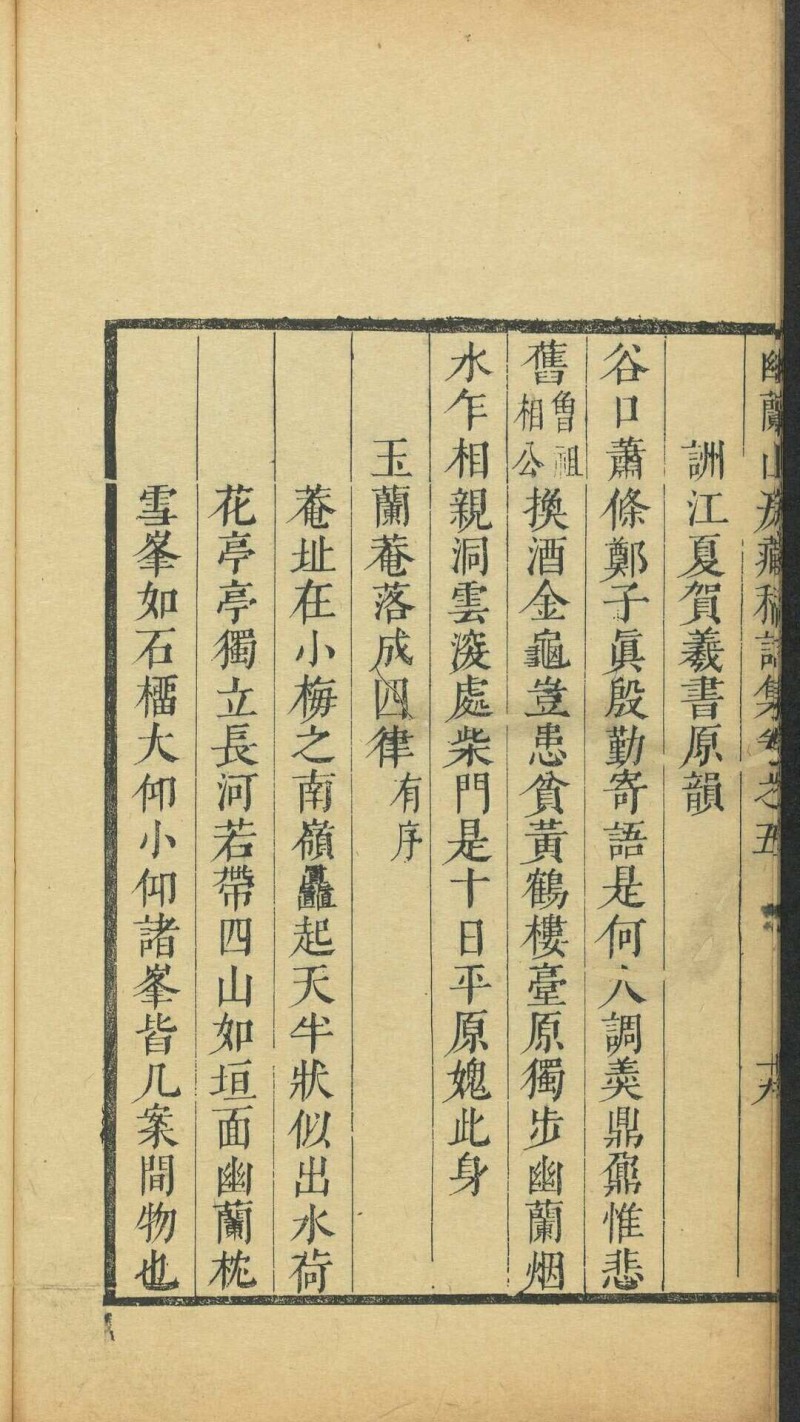 幽蘭山房藏稿詩集卷之五 十六
詶江夏賀羲書原韻
谷口蕭條鄭子眞殷勤寄語是何人調羮鼎鼐惟悲
舊魯祖相公換酒金龜豈患貧黃鶴樓臺原獨步幽蘭烟
水乍相親洞雲深處柴門是十日平原媿此身
玉蘭菴落成四律有序
菴址在小梅之南嶺矗起天半狀似出水荷
花亭亭獨立長河若帶四山如垣面幽蘭枕
雪峯如石櫺大仰小仰諸峯皆几案間物也